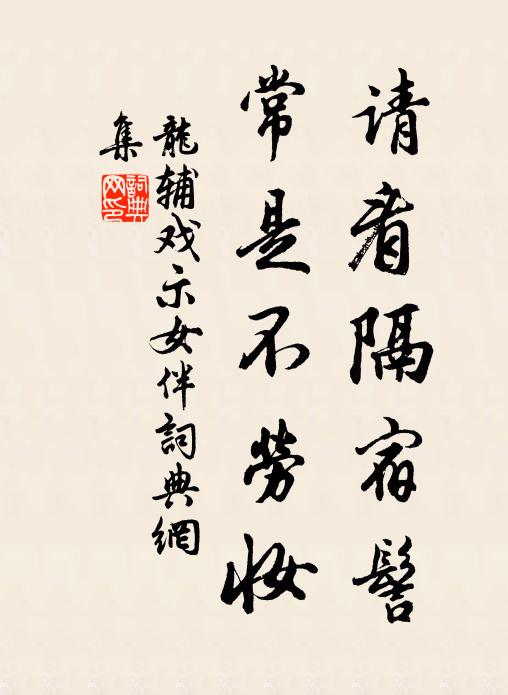 请看隔宿髻
常是不劳妆
龍辅戏示女伴詞典網
集
詞典網印